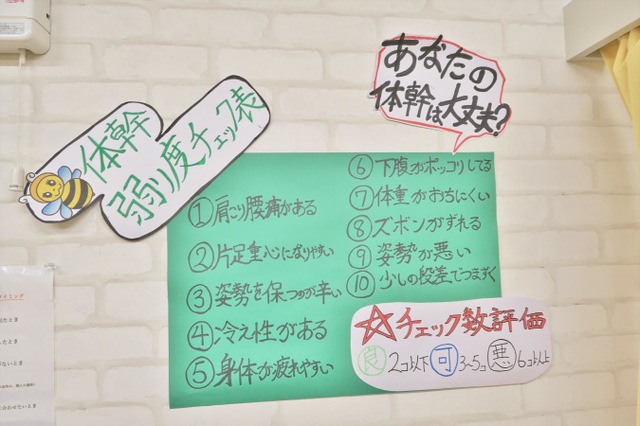 体幹
弱り度チェック表
あなたの
体幹は大丈夫?
①肩こり腰痛がある
②片足重心になりやすい
③姿勢を保つのが辛い
④冷え性がある
⑤身体が疲れやすい
⑥下腹がポッコリしてる
⑦体重がおちにくい
⑧ズボンがずれる
⑨姿勢が悪い
⑩少しの段差でつまずく
☆チェック数評価
良2コ以下 可3~5コ 悪6コ以上